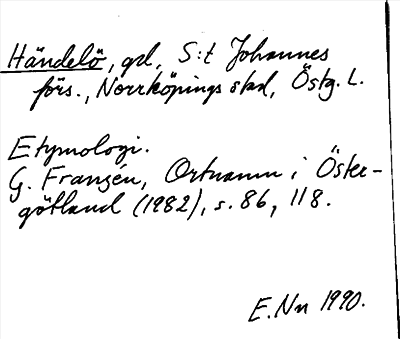 Händelö, gd, S:t Johannes
förs., Norrköpings stad, Östg. L.
Etymologi.
G. Franzén, Ortnamn i Öster-
götland (1982), s. 86, 118.
E. Nn 1990.